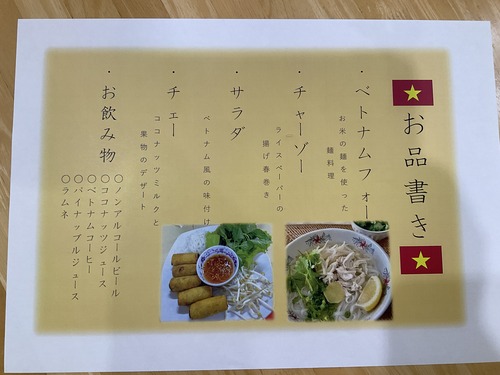 お品書き
・ベトナムフォー
お米の麺を使った
麺料理
・チャーゾー
ライスペーパーの
揚げ春巻き
・サラダ
ベトナム風の味付け
・チェー
ココナッツミルクと
果物のデザート
・お飲み物
〇ノンアルコールビール
〇ココナッツジュース
〇ベトナムコーヒー
〇パイナップルジュース
〇ラムネ